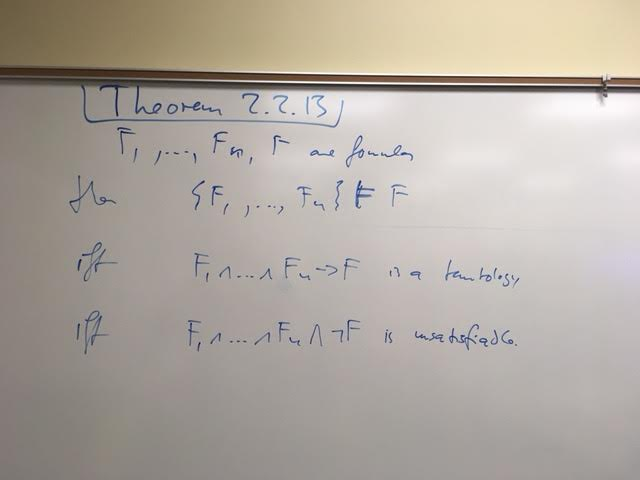 Theorem 2.2.13
F₁, ..., Fₙ, F are formulas
then {F₁, ..., Fₙ} ⊨ F
iff F₁ ∧ ... ∧ Fₙ → F is a tautology
iff F₁ ∧ ... ∧ Fₙ ∧ ¬F is unsatisfiable.